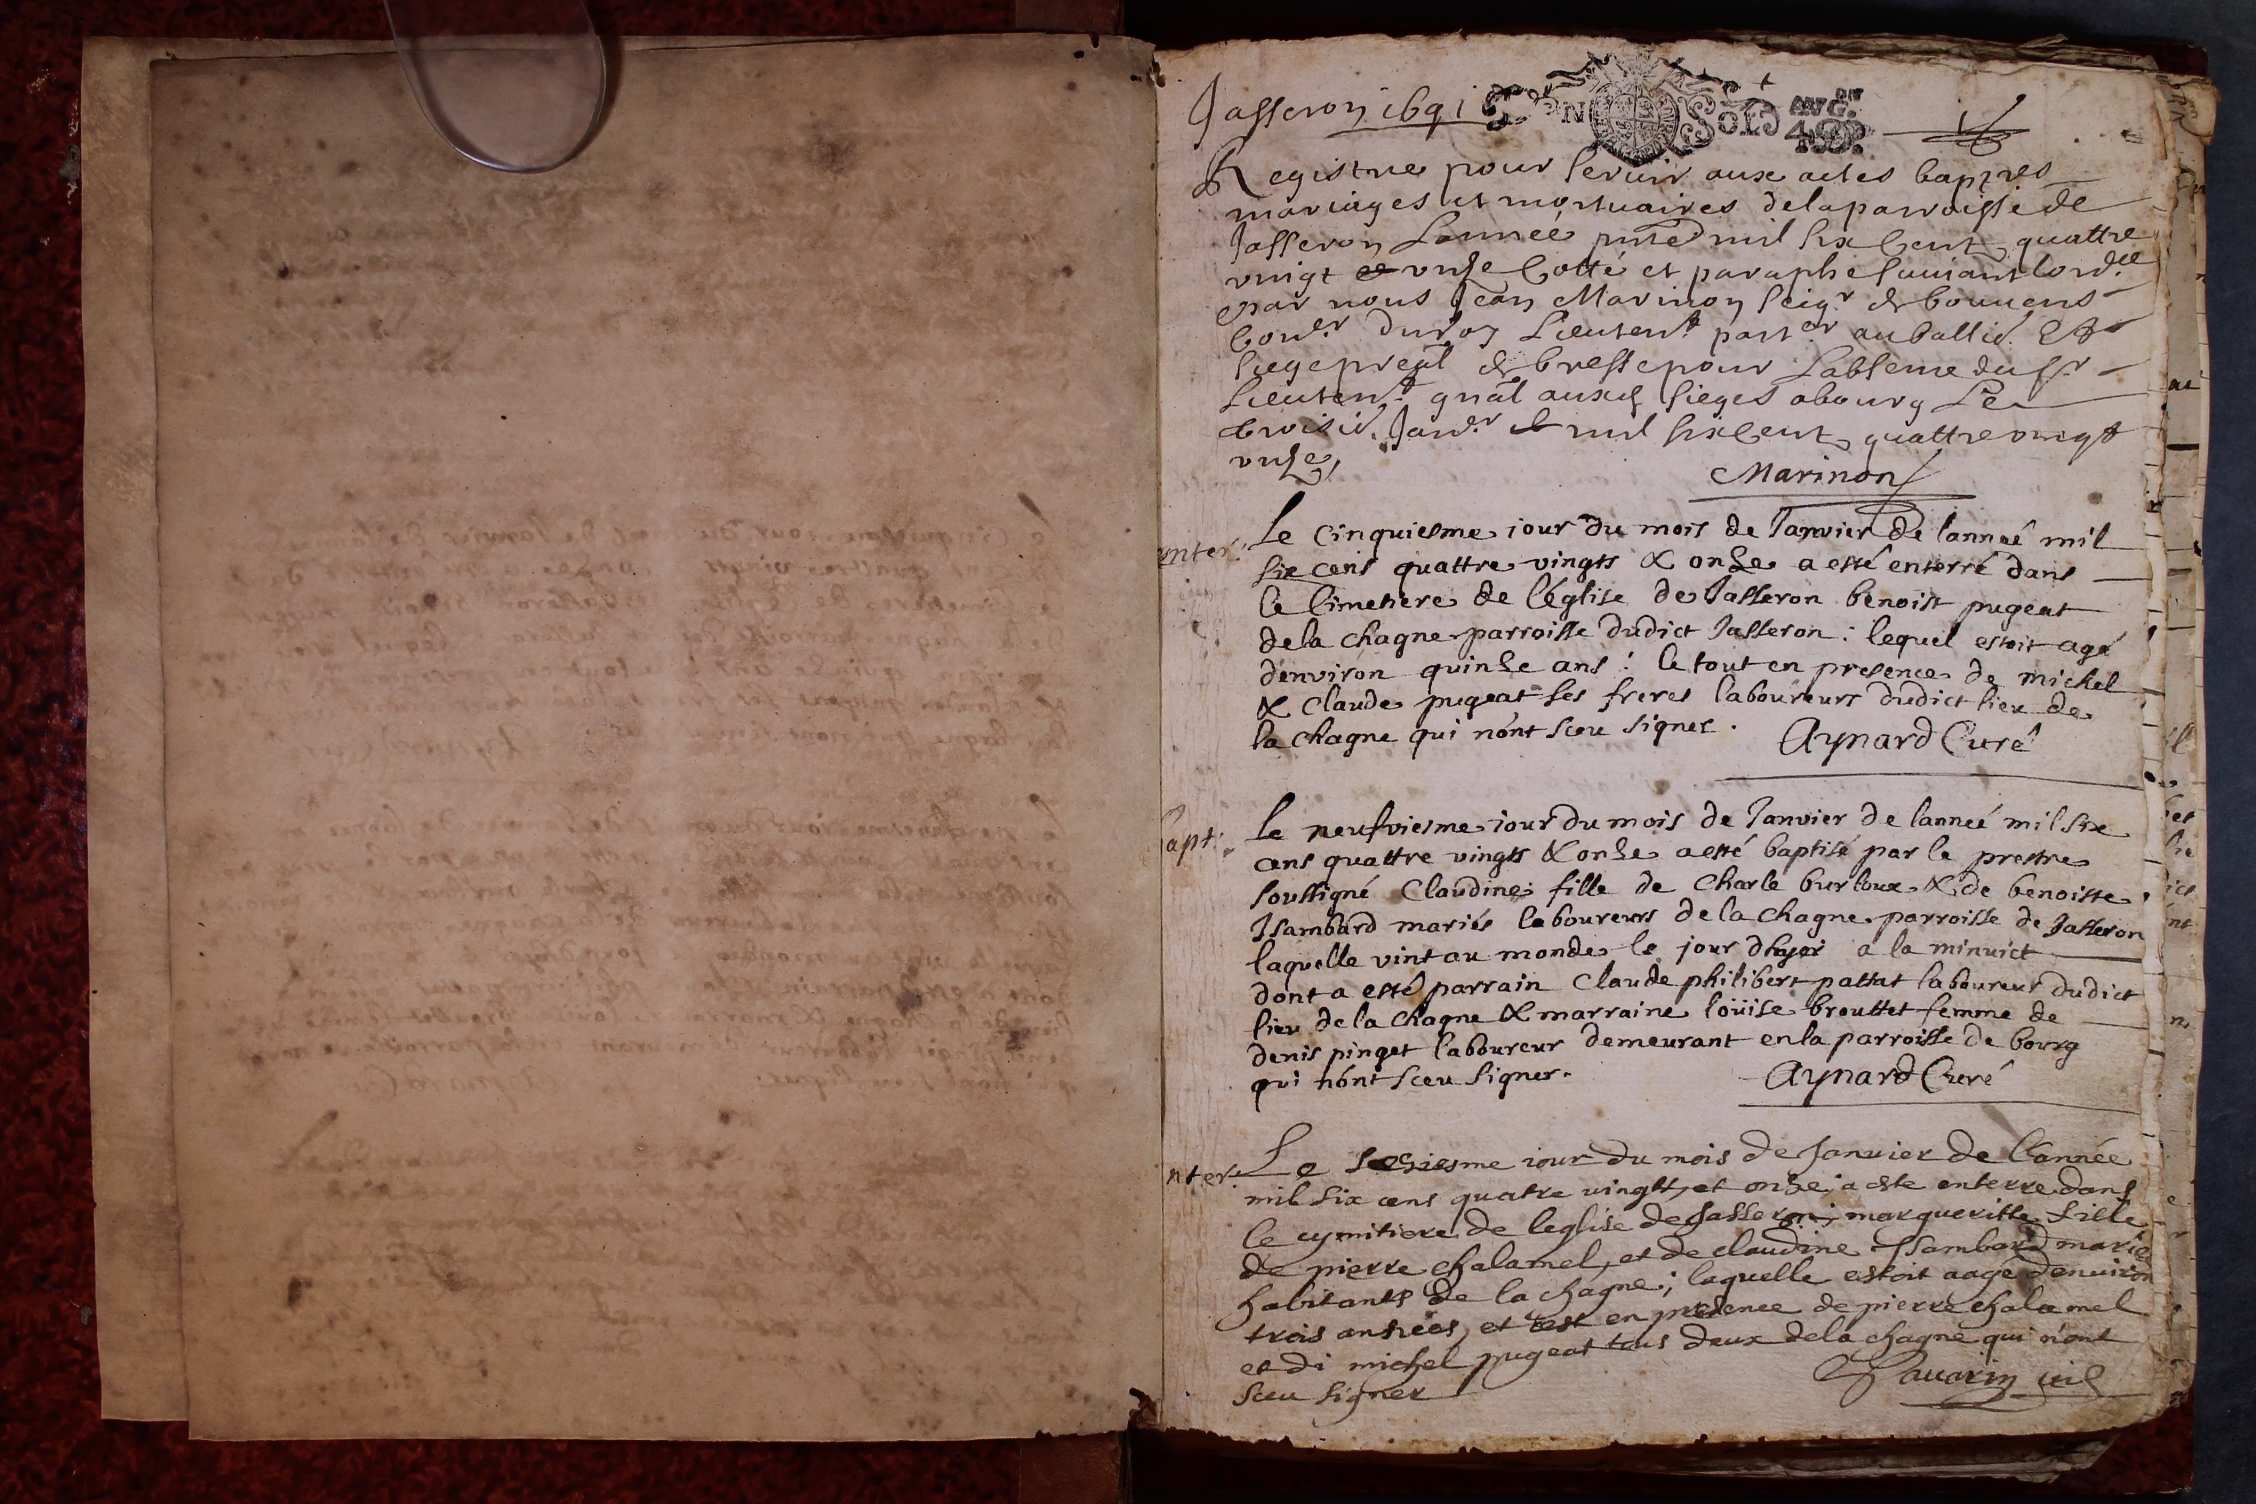 Jasseron 1691
GEN SOLS
Registre pour servir aux actes bap^res
mariages et mortuaires de la parroisse de
Jasseron Lannee pnte mil six Cent quattre
vingt et unze Cotté et paraphe suivant lord^ce
par nous Jean Marinon seig^r de bouvens
Con^er du Roy Lieuten^t part^er au balli^e Et
siege preal de bresse pour Labsence du s^r
Lieuten^t gnal auxd sieges a bourg Le
troisie. Janv^r mil six Cent quattre vingt
unze
Marinon
enter.
Le cinquiesme iour du mois de Janvier de lanneé mil
six cens quattre vingts & onze a esté enterré dans
le Cimetiere de léglise de Jasseron benoist pugeat
de la chagne parroisse dudict Jasseron : lequel estoit agé
denviron quinze ans : le tout en presence de michel
& Claude pugeat ses freres laboureurs dudict lieu de
la chagne qui nónt sceu signer .
Aynard Curé
bapt:
Le neufviesme iour du mois de Janvier de lanneé mil six
cens quattre vingts & onze a esté baptisé par le prestre
soussigné Claudine fille de Charle burloux & de benoiste
Isambard mariés laboureurs de la chagne parroisse de Jasseron
laquelle vint au monde le jour dhyer a la minuict
dont a esté parrain Claude philibert pattat laboureur dudict
lieu de la chagne & marraine loüise brouttet femme de
denis pinget laboureur demeurant en la parroisse de bourg
qui nónt sceu signer.
Aynard Curé
nter.
Le seziesme iour du mois de Janvier de lannée
mil six cens quatre vingtt, et onze, a este enterre dans
le cymitiere de leglise de Jasseron, margueritte fille
de pierre chalamel, et de claudine Isambard mariés
habitants de la chagne ; laquelle estoit aagé denviron
trois années, et cest en presence de pierre chalamel
et di michel pugeat tous deux de la chagne qui nont
sceu signer
Savarin vic